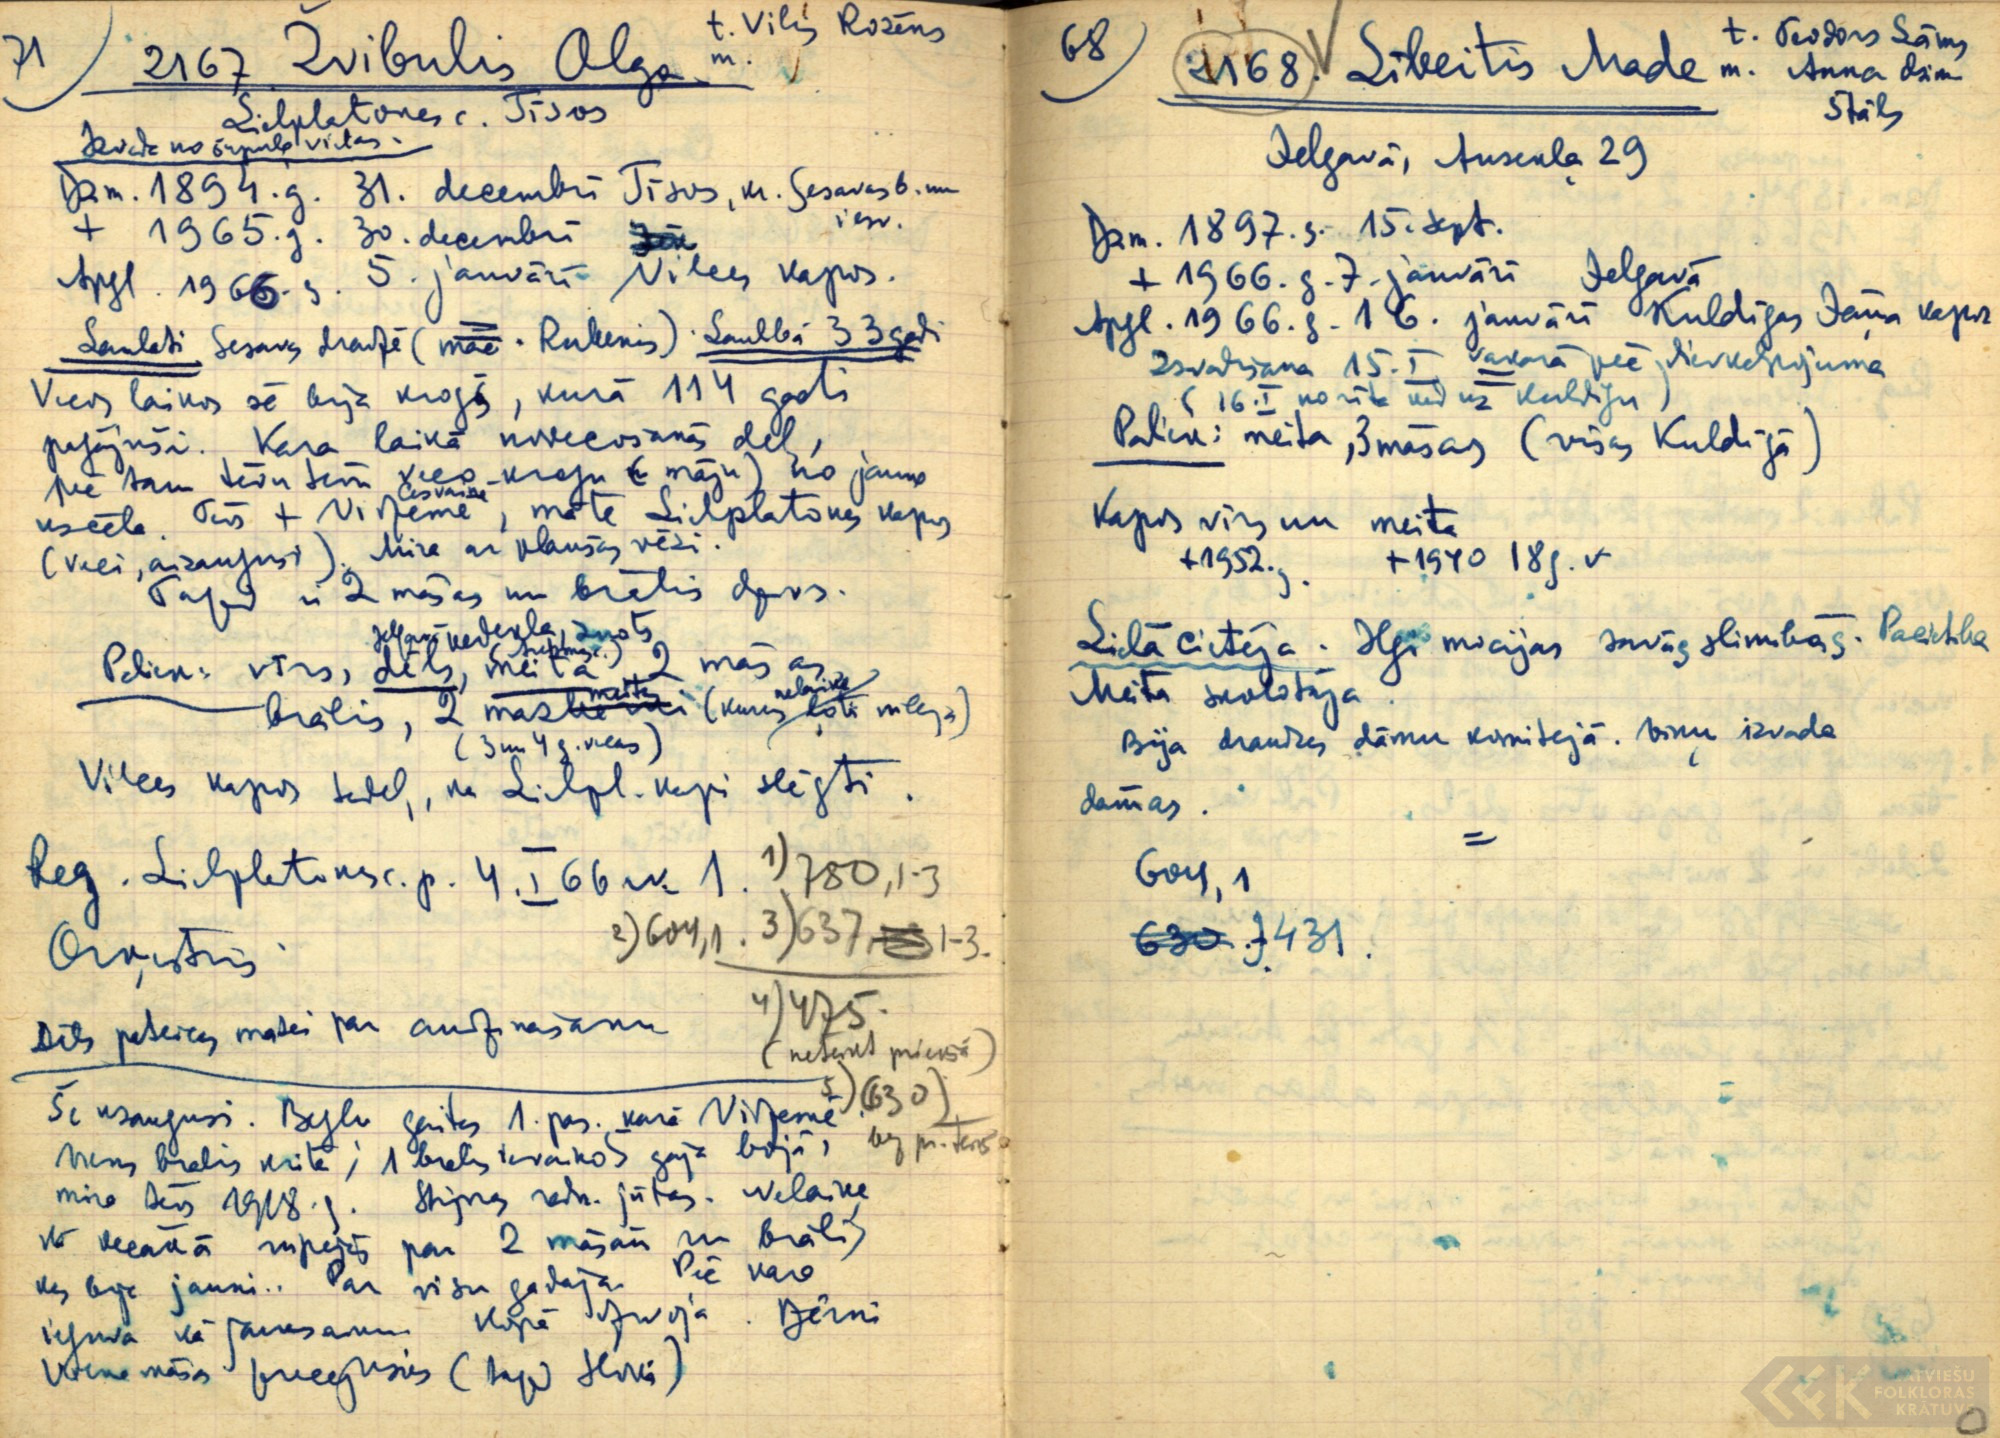 71) 2167 Žvibulis Olga t. Vilis Rozēns
m.
Lielplatones c. Tīsos
Izvada no šupuļa vietas.
Dzim. 1894. g. 31. decembrī Tīsos, kr. Sesavas b. un iesv.
+ 1965. g. 30. decembrī
Apgl. 1966. g. 5. janvārī Vilces kapos.
Laulāti Sesavas draudzē (māc. Rubenis). Laulībā 33 gadi
Vecos laikos šē bija krogs, kurā 114 gadi
pagājuši. Kara laikā novecošanās dēļ,
pēc tam tēvu tēvu veco krogu (māju) no jauna
uzcēla. Tēvs + Vidzemē Cesvainē, māte Lielplatones kapos
(veci, aizauguši). Mira ar plaušu vēzi.
Tagad ir 2 māsas un brālis dzīvs.
Jelgavā vedekla, znots
Paliek: vīrs, dēls, meita, 2 māsas,
brālis, 2 mazmeitas (kuras nelaiķe ļoti mīlēja)
(3 un 4 g. vecas)
Vilces kapos tādēļ, ka Lielpl. kapi slēgti.
Reg. Lielplatones c. p. 4. I 66 nr. 1. 1) 780, 1-3
2) 604, 1. 3) 637, 1-3.
Orķestris.
4) 475.
Dēls pateicas mātei par audzināšanu
(neteikt priekšā)
5) (630)
Še uzaugusi. Bēgļu gaitas 1. pas. karā Vidzemē.
Viens brālis krita, 1 brālis gāja bojā,
mira tēvs 1918. g. Stipras radn. jūtas. Nelaiķe
kā vecākā rūpējās par 2 māsām un brāli,
kas bija jauni.. Par visu gādāja. Pēc kara
ieguva kā jaunsaimn. Kopā dzīvoja. Bērni
Viena māsa precējusies (tagad Slokā)
68) 2168. Lībeitis Made t. Teodors Lāms
m. Anna dzim.
Štāls
Jelgavā, Ausekļa 29
Dzm. 1897. g. 15. sept.
+ 1966. g. 7. janvārī Jelgavā
Apgl. 1966. g. 16. janvārī Kuldīgas Jāņa kapos
Izvadīšana 15. I vakarā pēc dievkalpojuma
(16. I no rīta ved uz Kuldīgu)
Paliek: meita, 3 māsas (visas Kuldīgā)
Kapos vīrs un meita
+ 1952. g. + 1940 18 g. v
Lielā cietēja. Ilgi mocījās savās slimībās. Pacietība
Meita skolotāja.
Bija draudzes dāmu komitejā. Viņu izvada
dāmas.
=
604, 1
630. 431.
LATVIEŠU
FOLKLORAS
KRĀTUVE